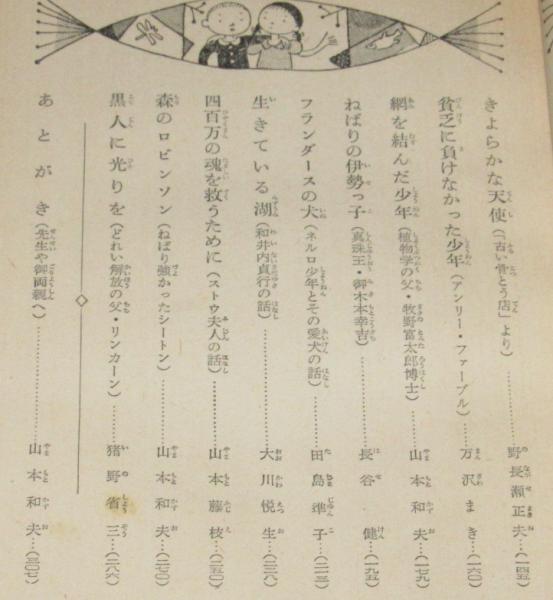 きよらかな天使（「古い骨とう店」より）…………野長瀬正夫…（一四五）
貧乏に負けなかった少年（アンリー・ファーブル）…………万沢まき…（一六〇）
網を結んだ少年（植物学の父・牧野富太郎博士）…………山本和夫…（一七九）
ねばりの伊勢っ子（真珠王・御木本幸吉）…………長谷健…（一九五）
フランダースの犬（ネルロ少年とその愛犬の話）…………田島準子…（二一三）
生きている湖（和井内貞行の話）…………大川悦生…（二三八）
四百万の魂を救うために（ストウ夫人の話）…………山本藤枝…（二五〇）
森のロビンソン（ねばり強かったシートン）…………山本和夫…（二七〇）
黒人に光りを（どれい解放の父・リンカーン）…………猪野省三…（二八六）
あとがき（先生や御両親へ）…………山本和夫…（三〇七）